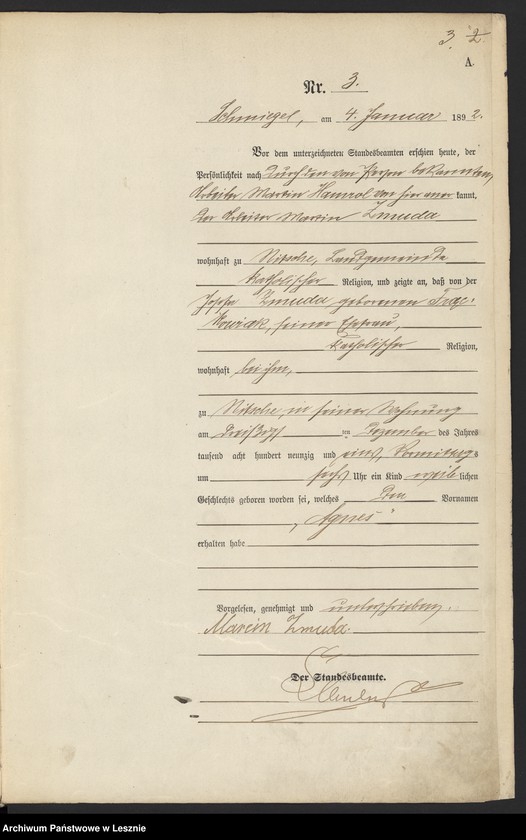 3. 2.
A.
Nr. 3.
Schmiegel, am 4. Januar 1892.
Vor dem unterzeichneten Standesbeamten erschien heute, der
Persönlichkeit nach durch den von Person bekannten
Arbeiter Martin von hier aner kannt,
der Arbeiter Martin Zmuda
wohnhaft zu Nitsche, Landgemeinde
katholischer Religion, und zeigte an, daß von der
Josefa Zmuda geborenen
seiner Ehefrau,
katholischer Religion,
wohnhaft bei ihm,
zu Nitsche, in seiner Wohnung
am dreißigsten Dezember des Jahres
tausend acht hundert neunzig und eins, Vormittags
um sechs Uhr ein Kind weiblichen
Geschlechts geboren worden sei, welches den Vornamen
„Agnes“
erhalten habe
Vorgelesen, genehmigt und unterschrieben.
Marcin Zmuda.
Der Standesbeamte.
Archiwum Państwowe w Lesznie